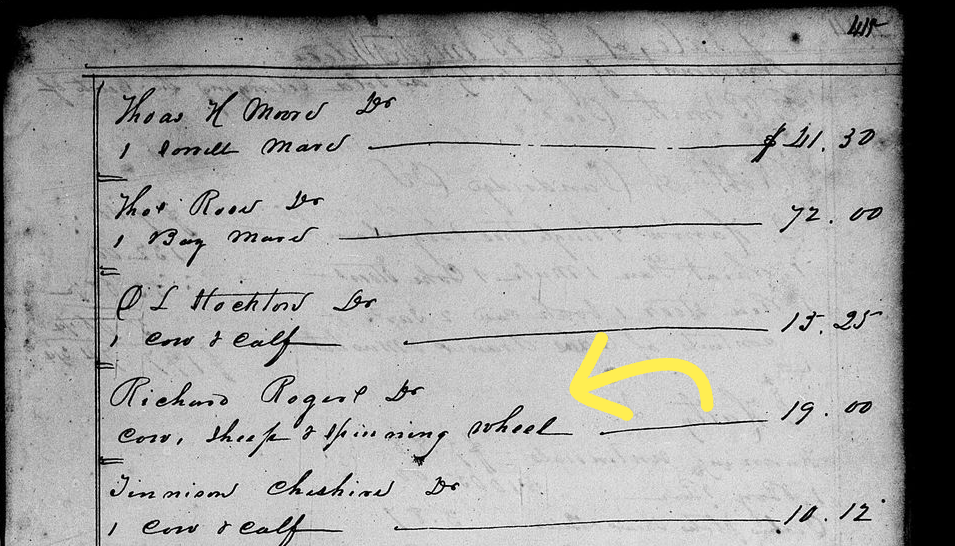 415
Thoas H Moore Dr
1 sorrell Mare $41.30
Thos Rose Dr
1 Bay Mare 72.00
L Stockton Dr
1 Cow & Calf 15.25
Richard Rogers Dr
Cow, Sheep & spinning wheel 19.00
Tinnison Cheshire Dr
1 Cow & Calf 10.12